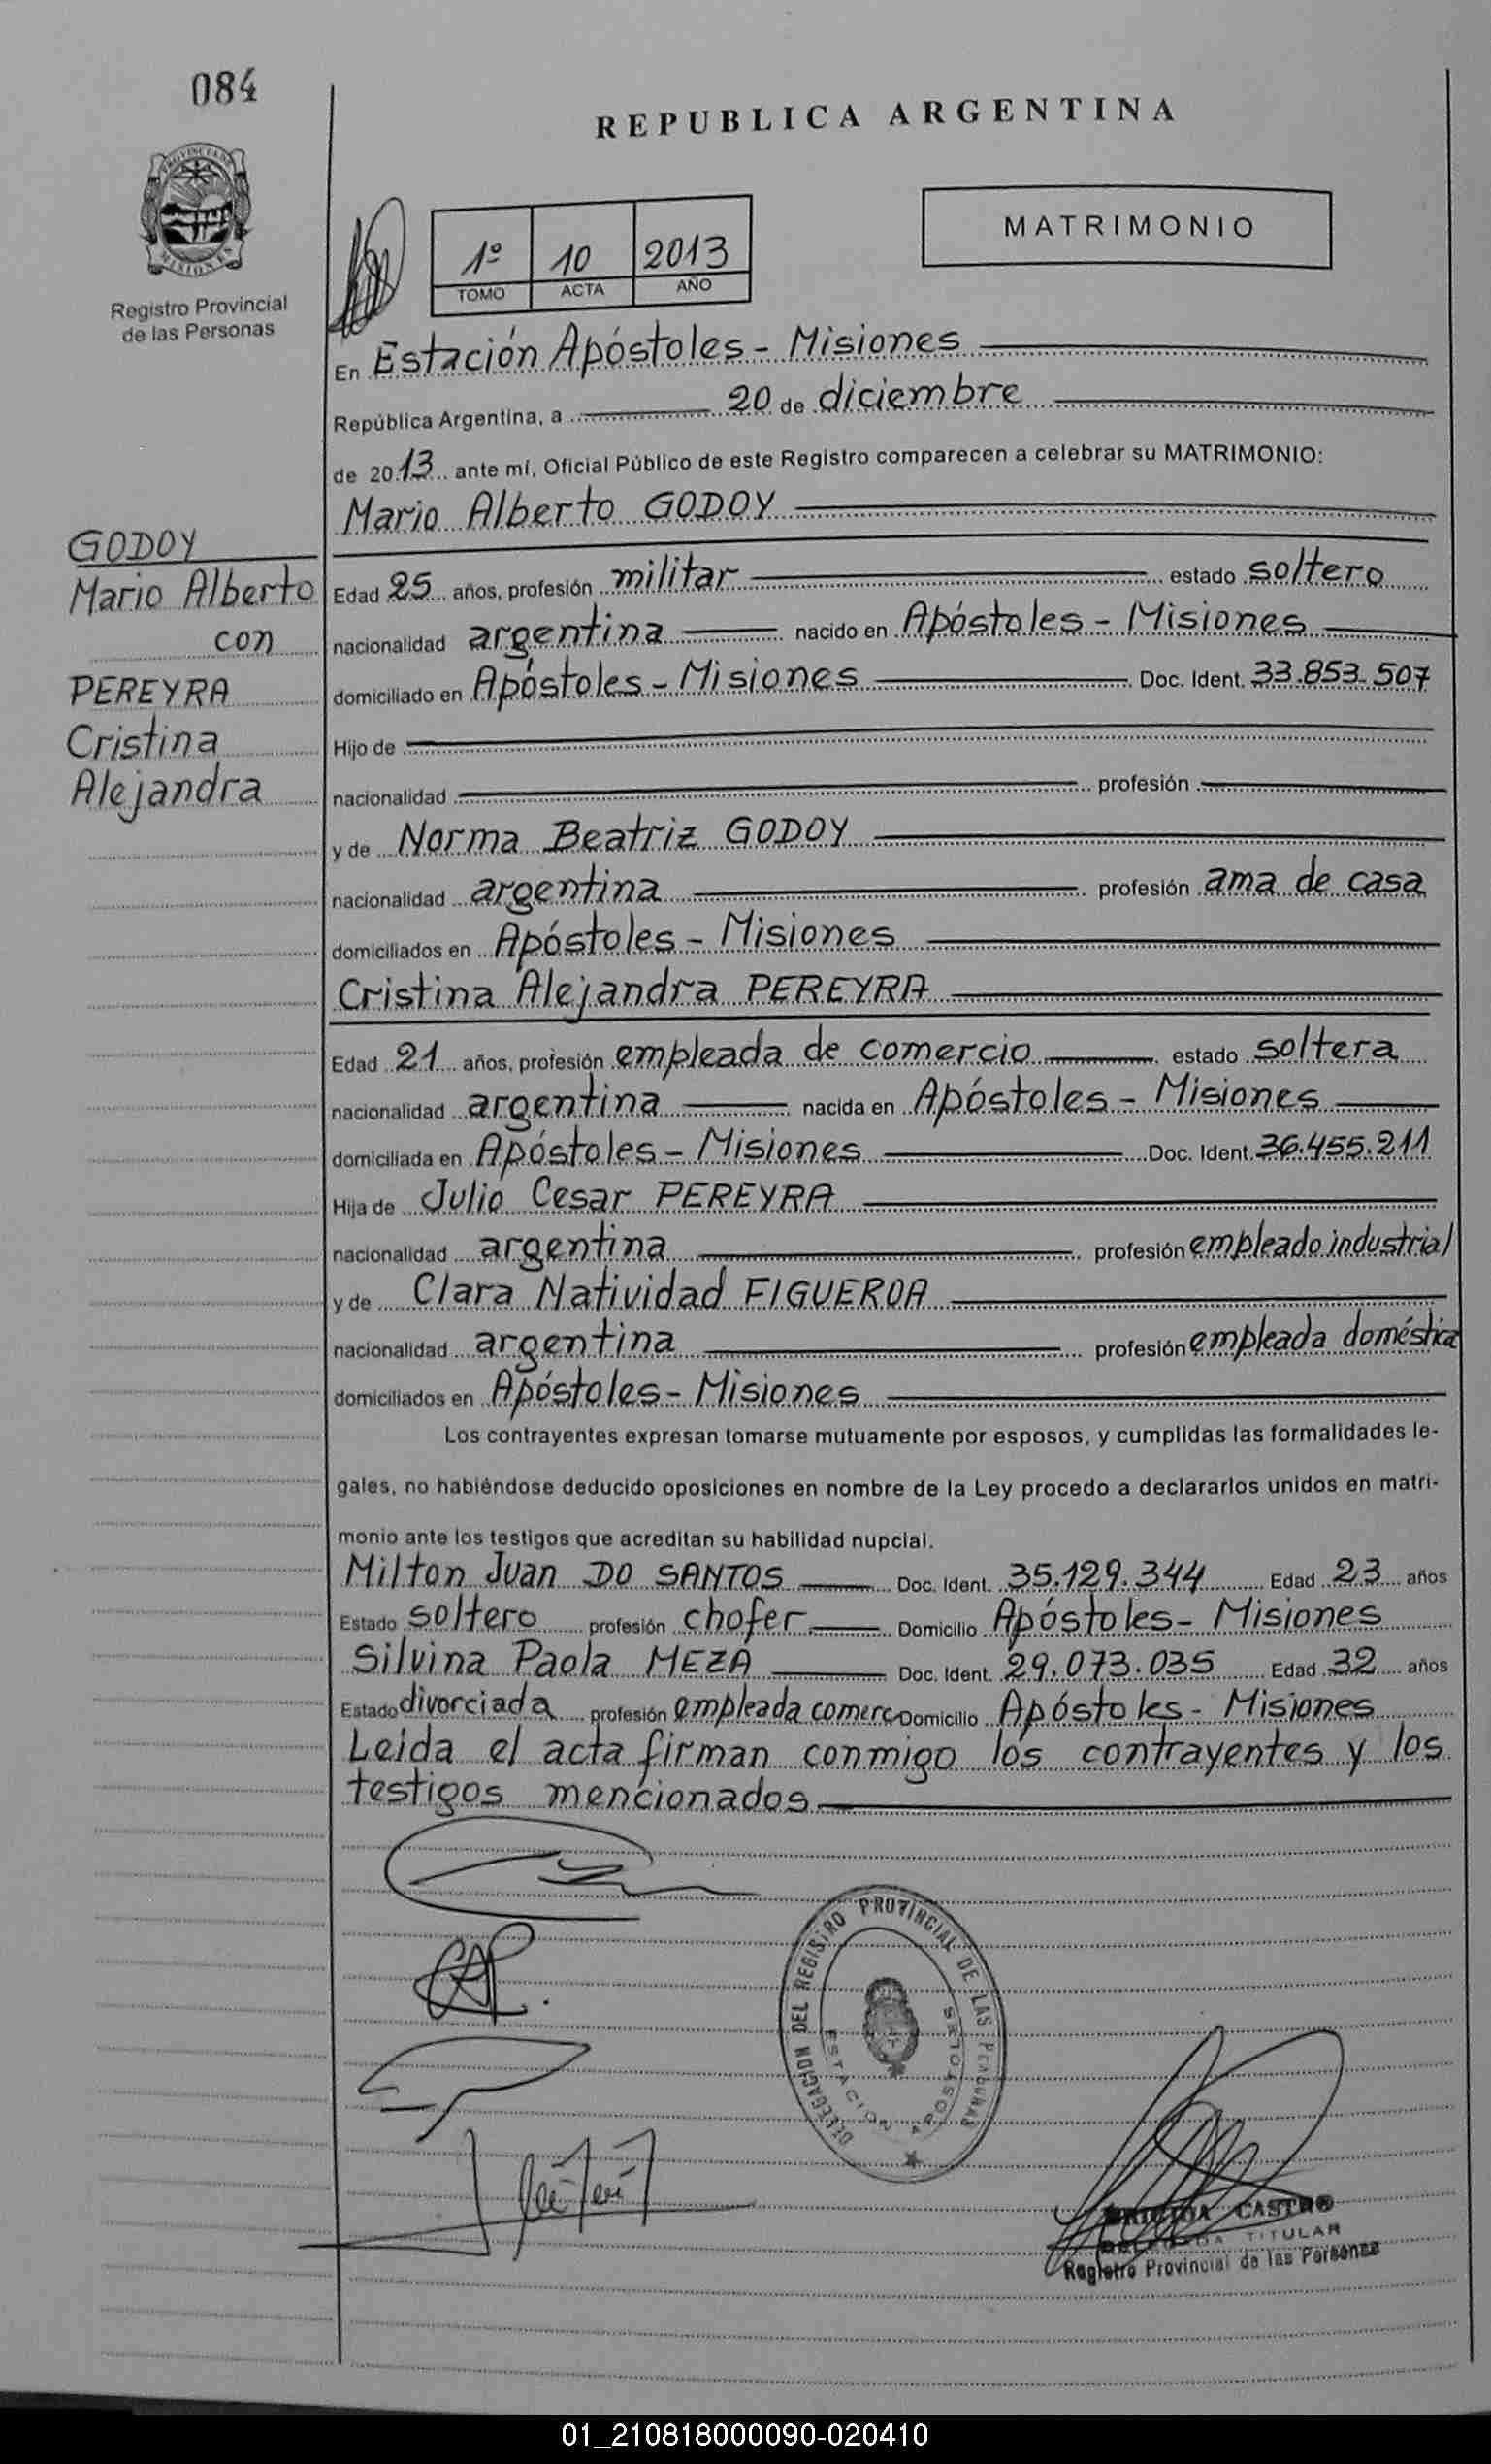 084
REPUBLICA ARGENTINA
PROVINCIA DE
MISIONES
Registro Provincial
de las Personas
1º 10 2013
TOMO ACTA AÑO
MATRIMONIO
En Estación Apóstoles - Misiones
República Argentina, a 20 de diciembre
de 2013 ante mí, Oficial Público de este Registro comparecen a celebrar su MATRIMONIO:
Mario Alberto GODOY
GODOY
Mario Alberto
con
PEREYRA
Cristina
Alejandra
Edad 25 años, profesión militar estado soltero
nacionalidad argentina nacido en Apóstoles - Misiones
domiciliado en Apóstoles - Misiones Doc. Ident. 33.853.507
Hijo de
nacionalidad profesión
y de Norma Beatriz GODOY
nacionalidad argentina profesión ama de casa
domiciliados en Apóstoles - Misiones
Cristina Alejandra PEREYRA
Edad 21 años, profesión empleada de comercio estado soltera
nacionalidad argentina nacida en Apóstoles - Misiones
domiciliada en Apóstoles - Misiones Doc. Ident. 36.455.211
Hija de Julio Cesar PEREYRA
nacionalidad argentina profesión empleado industrial
y de Clara Natividad FIGUEROA
nacionalidad argentina profesión empleada doméstica
domiciliados en Apóstoles - Misiones
Los contrayentes expresan tomarse mutuamente por esposos, y cumplidas las formalidades le-
gales, no habiéndose deducido oposiciones en nombre de la Ley procedo a declararlos unidos en matri-
monio ante los testigos que acreditan su habilidad nupcial.
Milton Juan DO SANTOS Doc. Ident. 35.129.344 Edad 23 años
Estado soltero profesión chofer Domicilio Apóstoles - Misiones
Silvina Paola MEZA Doc. Ident. 29.073.035 Edad 32 años
Estado divorciada profesión empleada comerc Domicilio Apóstoles - Misiones
Leida el acta firman conmigo los contrayentes y los
testigos mencionados
DELEGACION DEL REGISTRO PROVINCIAL DE LAS PERSONAS
ESTACION APOSTOLES
CASTRO
TITULAR
Registro Provincial de las Personas
01_210818000090-020410